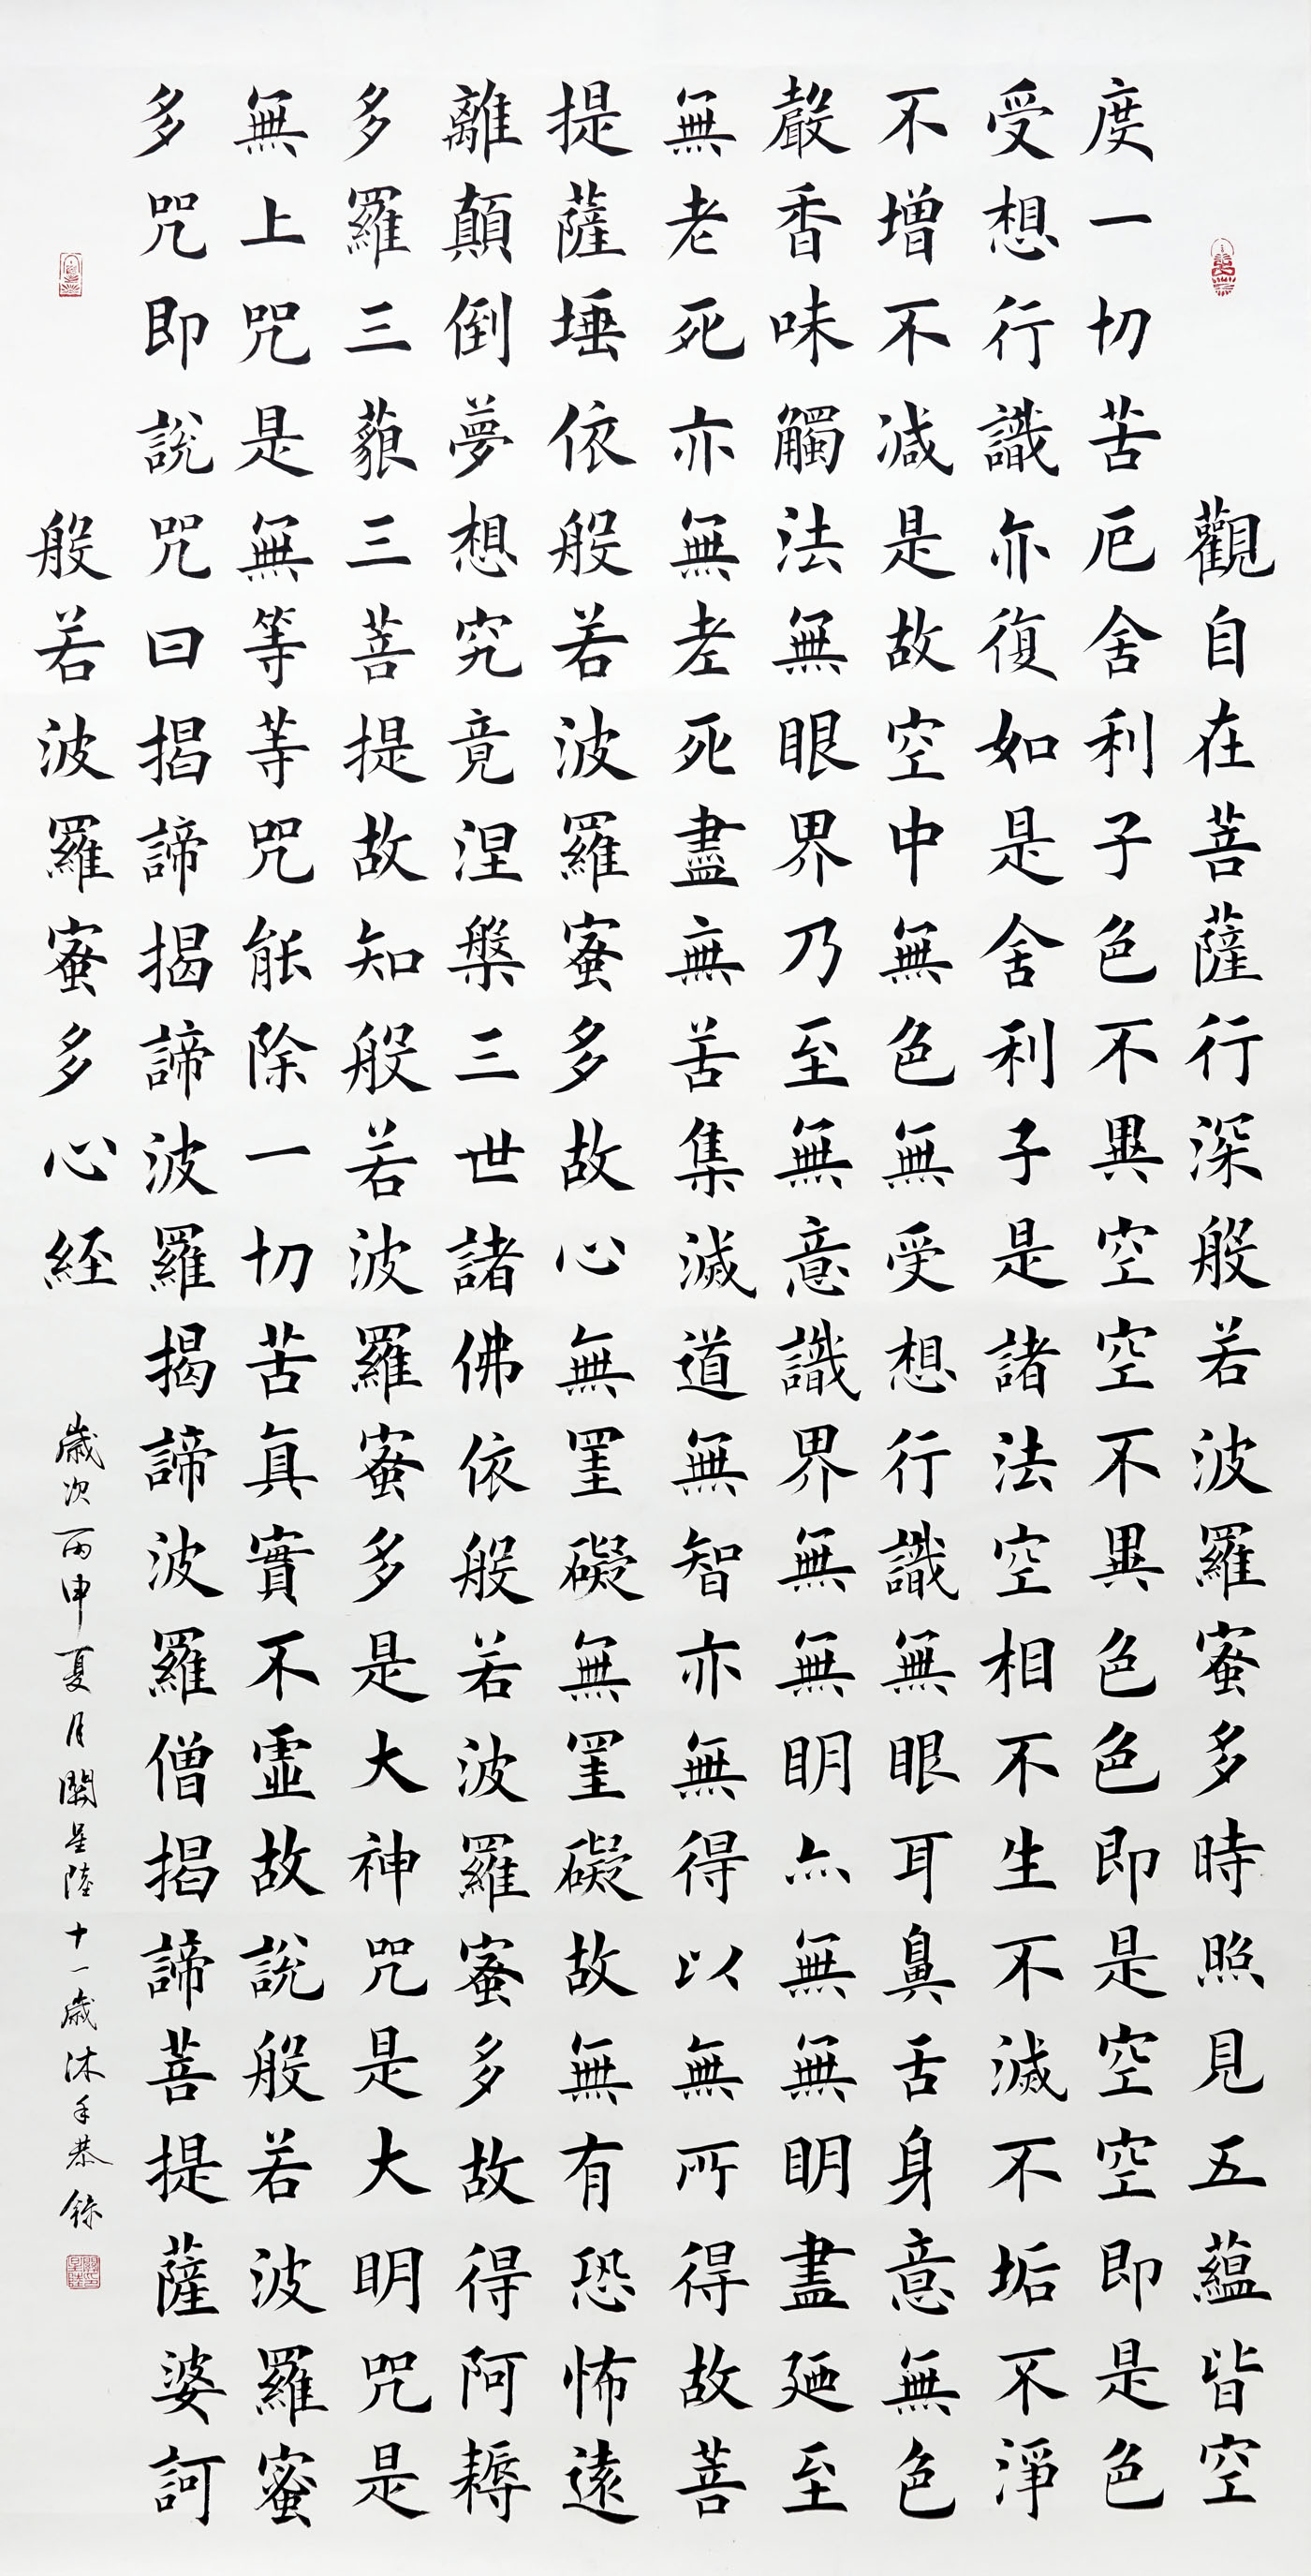 觀自在菩薩行深般若波羅蜜多時照見五蘊皆空
度一切苦厄舍利子色不異空空不異色色即是空空即是色
受想行識亦復如是舍利子是諸法空相不生不滅不垢不淨
不增不減是故空中無色無受想行識無眼耳鼻舌身意無色
聲香味觸法無眼界乃至無意識界無無明亦無無明盡廼至
無老死亦無老死盡無苦集滅道無智亦無得以無所得故菩
提薩埵依般若波羅蜜多故心無罣礙無罣礙故無有恐怖遠
離顛倒夢想究竟涅槃三世諸佛依般若波羅蜜多故得阿耨
多羅三藐三菩提故知般若波羅蜜多是大神咒是大明咒是
無上咒是無等等咒能除一切苦真實不虛故說般若波羅蜜
多咒即說咒曰揭諦揭諦波羅揭諦波羅僧揭諦菩提薩婆訶
般若波羅蜜多心経
歲次丙申夏月闞星陸十一歲沐手恭錄